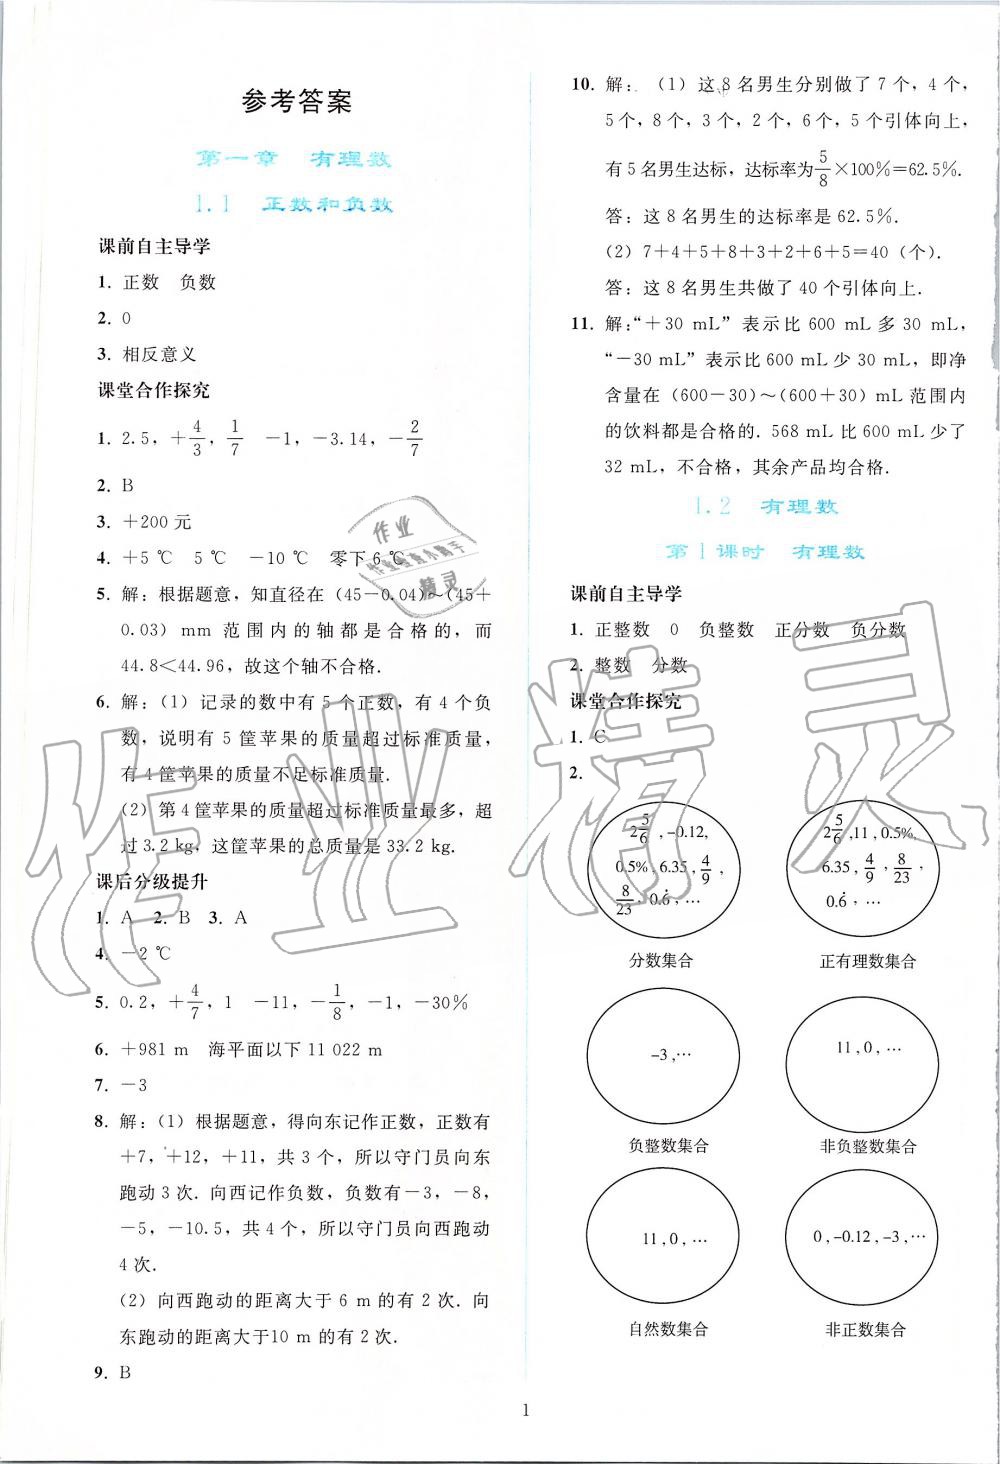 参考答案
第一章 有理数
1.1 正数和负数
课前自主导学
1. 正数 负数
2. 0
3. 相反意义
课堂合作探究
1. 2.5，+4/3，1/7 －1，－3.14，－2/7
2. B
3. +200 元
4. +5 ℃ 5 ℃ －10 ℃ 零下 6 ℃
5. 解：根据题意，知直径在（45－0.04）~（45＋
0.03）mm 范围内的轴都是合格的，而
44.8＜44.96，故这个轴不合格.
6. 解：（1）记录的数中有 5 个正数，有 4 个负
数，说明有 5 筐苹果的质量超过标准质量，
有 4 筐苹果的质量不足标准质量.
（2）第 4 筐苹果的质量超过标准质量最多，超
过 3.2 kg，这筐苹果的总质量是 33.2 kg.
课后分级提升
1. A 2. B 3. A
4. －2 ℃
5. 0.2，+4/7，1 －11，－1/8，－1，－30％
6. ＋981 m 海平面以下 11 022 m
7. －3
8. 解：（1）根据题意，得向东记作正数，正数有
＋7，＋12，＋11，共 3 个，所以守门员向东
跑动 3 次. 向西记作负数，负数有－3，－8，
－5，－10.5，共 4 个，所以守门员向西跑动
4 次.
（2）向西跑动的距离大于 6 m 的有 2 次. 向
东跑动的距离大于10 m 的有 2 次.
9. B
10. 解：（1）这 8 名男生分别做了 7 个，4 个，
5 个，8 个，3 个，2 个，6 个，5 个引体向上，
有 5 名男生达标，达标率为5/8×100％＝62.5％.
答：这 8 名男生的达标率是 62.5％.
（2）7＋4＋5＋8＋3＋2＋6＋5＝40（个）.
答：这 8 名男生共做了 40 个引体向上.
11. 解：“＋30 mL”表示比 600 mL 多 30 mL，
“－30 mL”表示比 600 mL 少 30 mL，即净
含量在（600－30）～（600＋30）mL 范围内
的饮料都是合格的. 568 mL 比 600 mL 少了
32 mL，不合格，其余产品均合格.
1.2 有理数
第 1 课时 有理数
课前自主导学
1. 正整数 0 负整数 正分数 负分数
2. 整数 分数
课堂合作探究
1. C
2.
2 5/6，-0.12，
0.5%，6.35，4/9，
8/23，0.6̇，…
分数集合
2 5/6，11，0.5%，
6.35，4/9，8/23，
0.6̇，…
正有理数集合
-3，…
负整数集合
11，0，…
非负整数集合
11，0，…
自然数集合
0，-0.12，-3，…
非正数集合
1
作业
精灵
作业精灵